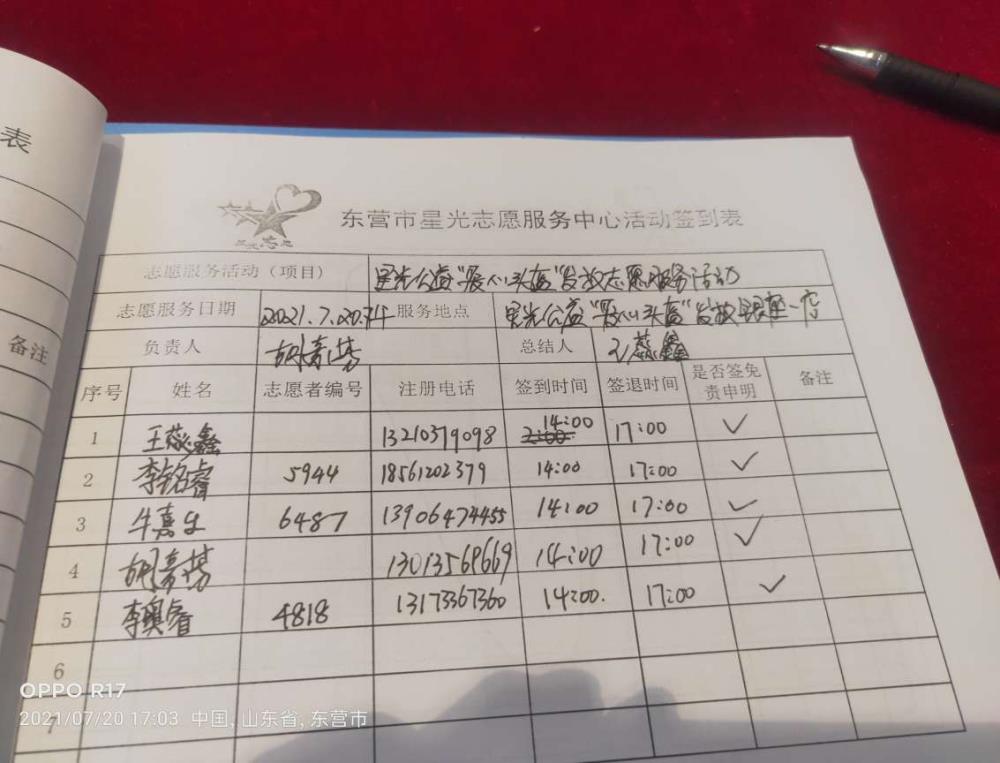 表
备注
东营市星光志愿服务中心活动签到表
志愿服务活动（项目） 星光公益“爱心头盔”发放志愿服务活动
志愿服务日期 2021.7.20.下午 服务地点 星光公益“爱心头盔”发放银座一店
负责人 胡 总结人 王蕊鑫
序号 姓名 志愿者编号 注册电话 签到时间 签退时间 是否签免责申明 备注
1 王蕊鑫 13210379098 14:00 17:00 ✓
2 李铭睿 5944 18561202379 14:00 17:00 ✓
3 牛嘉生 6487 13906474455 14:00 17:00 ✓
4 胡 13013568669 14:00 17:00 ✓
5 李奥睿 4818 13173367360 14:00. 17:00 ✓
6
7
OPPO R17
2021/07/20 17:03 中国, 山东省, 东营市